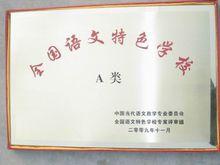 全国语文特色学校
A 类
中国当代语文教学专业委员会
全国语文特色学校专家评审组
二零零九年十一月